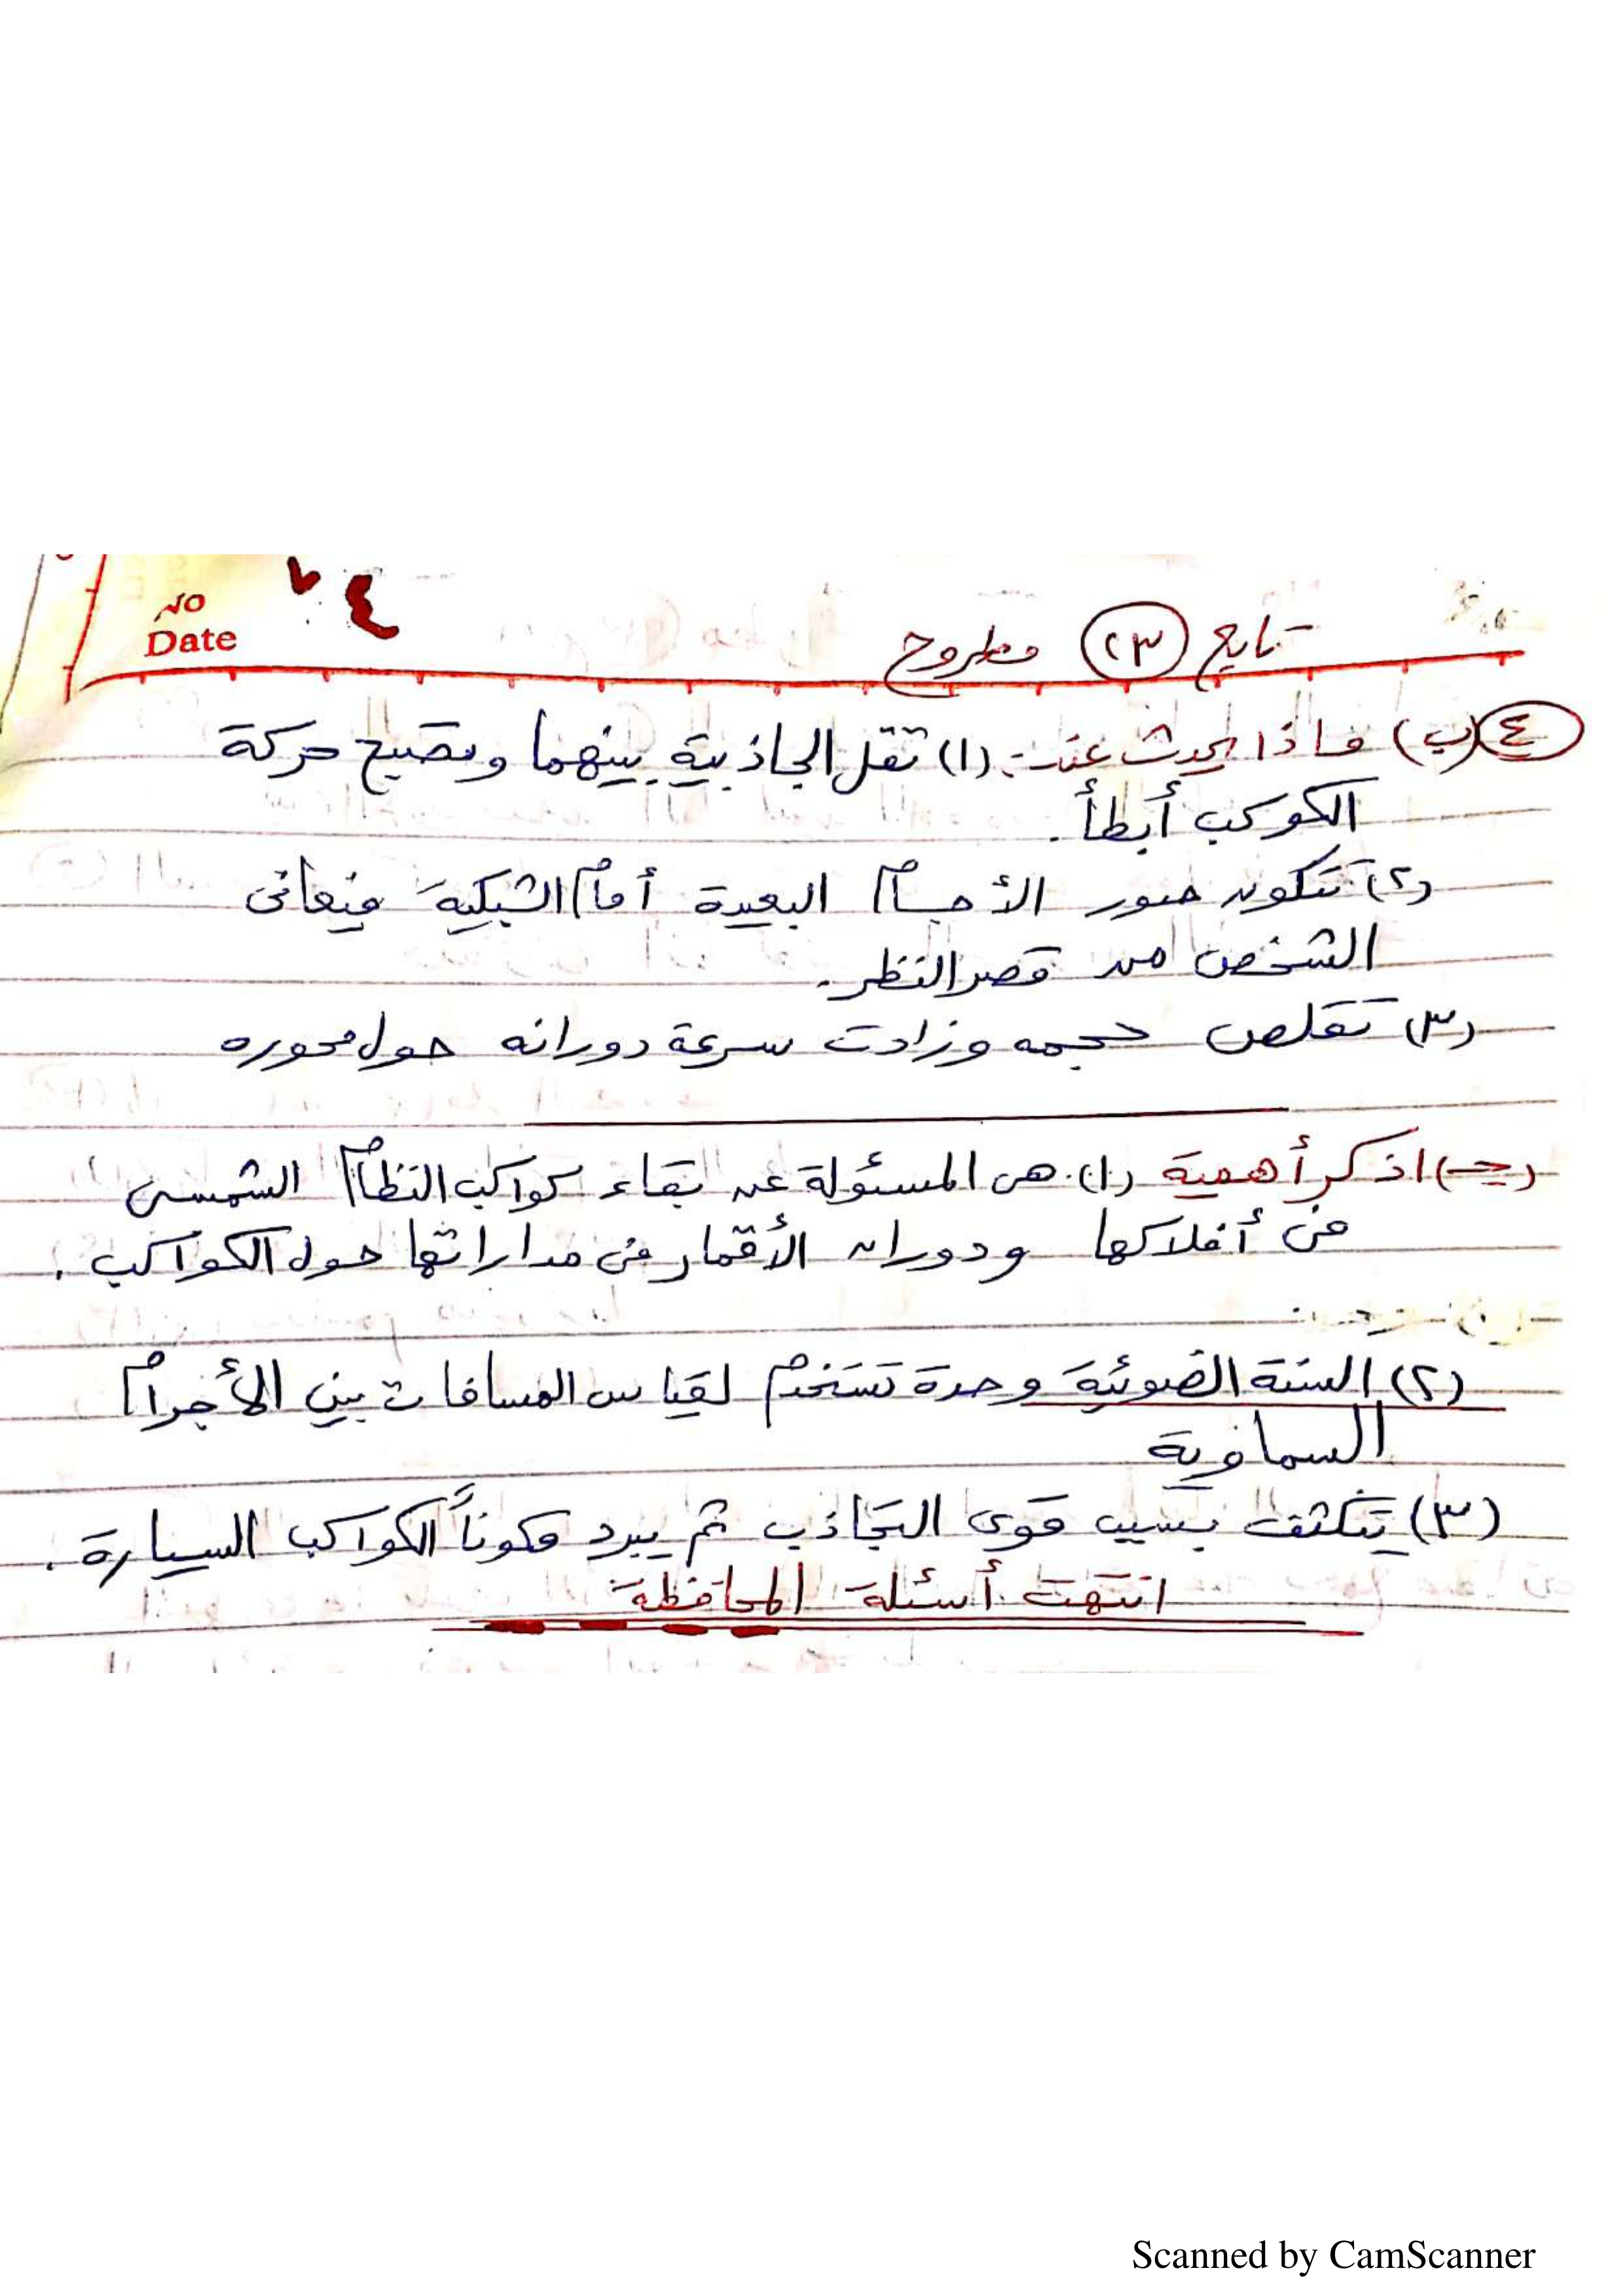 ٧٤
NO
Date
تابع (٢٣) مطروح
٤ (ب) ماذا يحدث عند:- (١) تقل الجاذبية بينهما وتصبح حركة
الكوكب أبطأ.
(٢) تتكون صور الأجسام البعيدة أمام الشبكية فيعانى
الشخص من قصر النظر.
(٣) تقلص حجمه وزادت سرعة دورانه حول محوره
(جـ) اذكر أهمية (١) هى المسئولة عن بقاء كواكب النظام الشمسى
فى أفلاكها ودوران الأقمار فى مداراتها حول الكواكب.
(٢) السنة الضوئية وحدة تستخدم لقياس المسافات بين الأجرام
السماوية
(٣) يتكثف بسبب قوى التجاذب ثم يبرد مكوناً الكواكب السيارة.
انتهت أسئلة المحافظة
Scanned by CamScanner